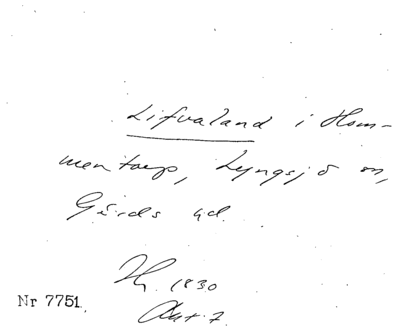 Lifvaland i Hom-
mentorp, Lyngsjö sn,
Gärds hd.
Hy. 1830
Akt. 7
Nr 7751.